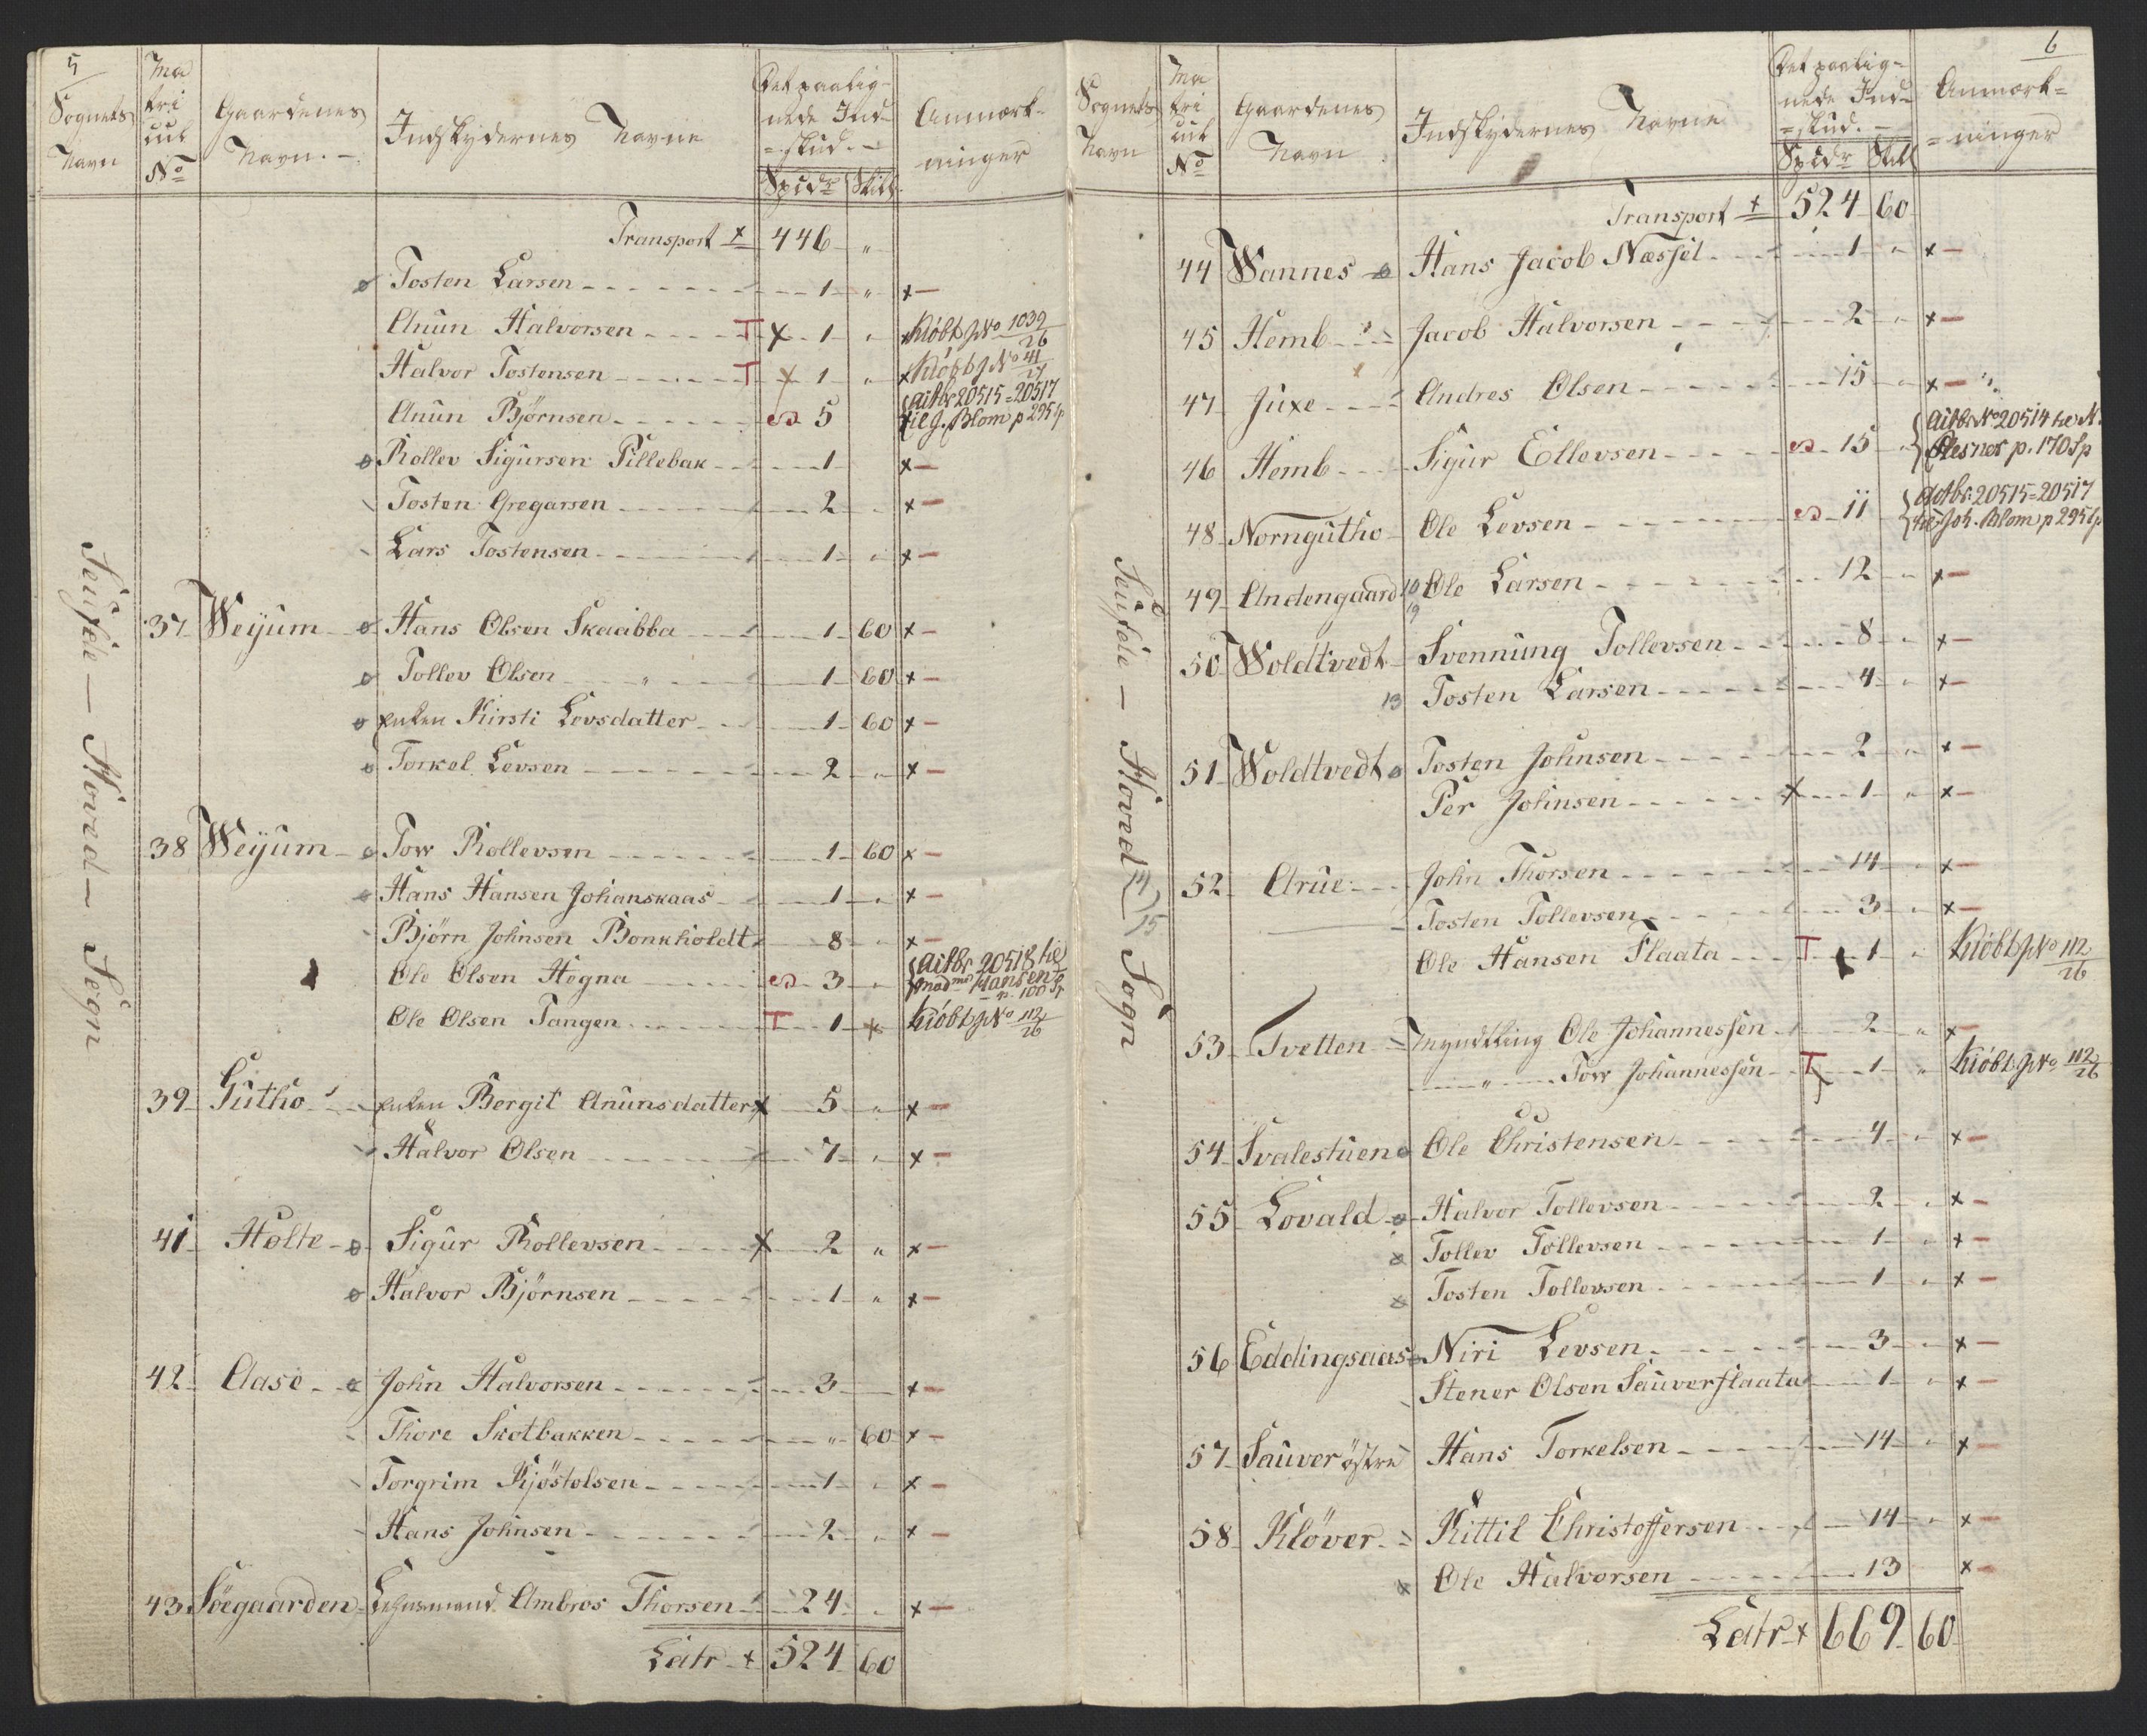 5
Sognets Navn | Ma tri cul No | Gaardenes Navn. | Indskydernes Navne | Det paalig= nede Ind= =skud. Spcdr Skill | Anmærk= ninger
Transport 446 "
Tosten Larsen 1 " x —
Anun Halvorsen T x 1 " x Kiöbt JNo 1039/26
Halvor Tostensen T x 1 " x Kiöbt JNo 41/27
Anun Björnsen 5 actbr 20515=20517 til J. Blom p 295 Sp
Rollev Sigursen Pillebak 1 x —
Tosten Gregarsen 2 " x —
Lars Tostensen 1 " x —
Seufde — Hoved — Sogn
37 Weyum Hans Olsen Skaabba 1 60 x —
Tollev Olsen 1 60 x —
Enken Kirsti Levsdatter 1 60 x —
Torkel Levsen 2 " x —
38 Weyum Tow Rollevsen 1 60 x —
Hans Hansen Johanskaas 1 " x —
Björn Johnsen Bonkholdt 8 " x —
Ole Olsen Hegna 3 " actbr 20518 til Madme Hansen p. 100 Sp
Ole Olsen Tangen T 1 x Kiöbt JNo 112/26
39 Gutho Enken Bergit Anunsdatter x 5 " x —
Halvor Olsen 7 " x —
41 Holte Sigur Rollevsen x 2 " x —
Halvor Björnsen 1 " x —
42 Aase John Halvorsen 3 x —
Thore Skotbakken " 60 x —
Torgrim Kjöstolsen 1 " x —
Hans Johnsen 2 " x —
43 Söegaarden Lehnsmand Ambros Thorsen 24 " x —
Latr 524 60
6
Sognets Navn | Ma tri cul No | Gaardenes Navn | Indskydernes Navne | Det paalig= nede Ind= =skud. Spcdr Skill | Anmærk= =ninger
Transport 524 60
44 Wannes Hans Jacob Næssel 1 " x —
45 Hemb Jacob Halvorsen 2 " x —
47 Juxe Andres Olsen 15 " x —
46 Hemb Sigur Ellevsen 15 " actbr No 20514 til N. Plesner p. 170 Sp
48 Norngutho Ole Levsen 11 actbr 20515=20517 til Joh. Blom p 295 Sp
49 Andengaard Ole Larsen 12 " x —
Seufde — Hoved Sogn
50 Woldtvedt Svennung Tollevsen 8 " x —
13 Tosten Larsen 4 " x —
51 Woldtvedt Tosten Johnsen 2 " x —
Per Johnsen x 1 " x —
52 Arue John Thorsen 14 " x —
Tosten Tollevsen 3 " x —
Ole Hansen Flaata T 1 " Kiöbt JNo 112/26
53 Tvetten Myndtling Ole Johannessen 2 " x —
" Tow Johannessen T 1 " Kiöbt JNo 112/26
54 Svalestuen Ole Christensen 4 " x —
55 Lovald Halvor Tollevsen 2 " x —
Tollev Tollevsen 1 " x —
Tosten Tollevsen 1 " x —
56 Eddingsaas Niri Levsen 3 " x —
Stener Olsen Sauverflaata 1 " x —
57 Sauver östre Hans Torkelsen 14 " x —
58 Klöver Kittil Christoffersen 14 " x —
Ole Halvorsen 13 x —
Latr 669 60